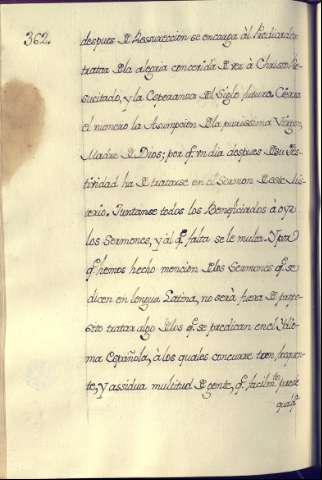 362.
despues de Ressurreccion se encarga àl Predicador
tratar de la alegria concevida de ver à Christo Re-
sucitado, y la Esperanza del Siglo futuro. Cierra
el numero la Assumpcion de la purissima Virgen,
Madre de Dios; por q̃ vn dia despues de su Fes-
tividad ha de tratarse en el Sermon de este Mis-
terio. Juntanse todos los Beneficiados à oyr
los Sermones, y àl q̃ falta se le multa. Y pues
q̃ hemos hecho mencion de los Sermones q̃ se
dicen en lengua Latina, no serà fuera de propo-
sito tratar algo de los q̃ se predican en el Ydio-
ma Español, à los quales concurre tan frequen-
te, y assidua multitud de gente, q̃ facilmte puede
qualqr